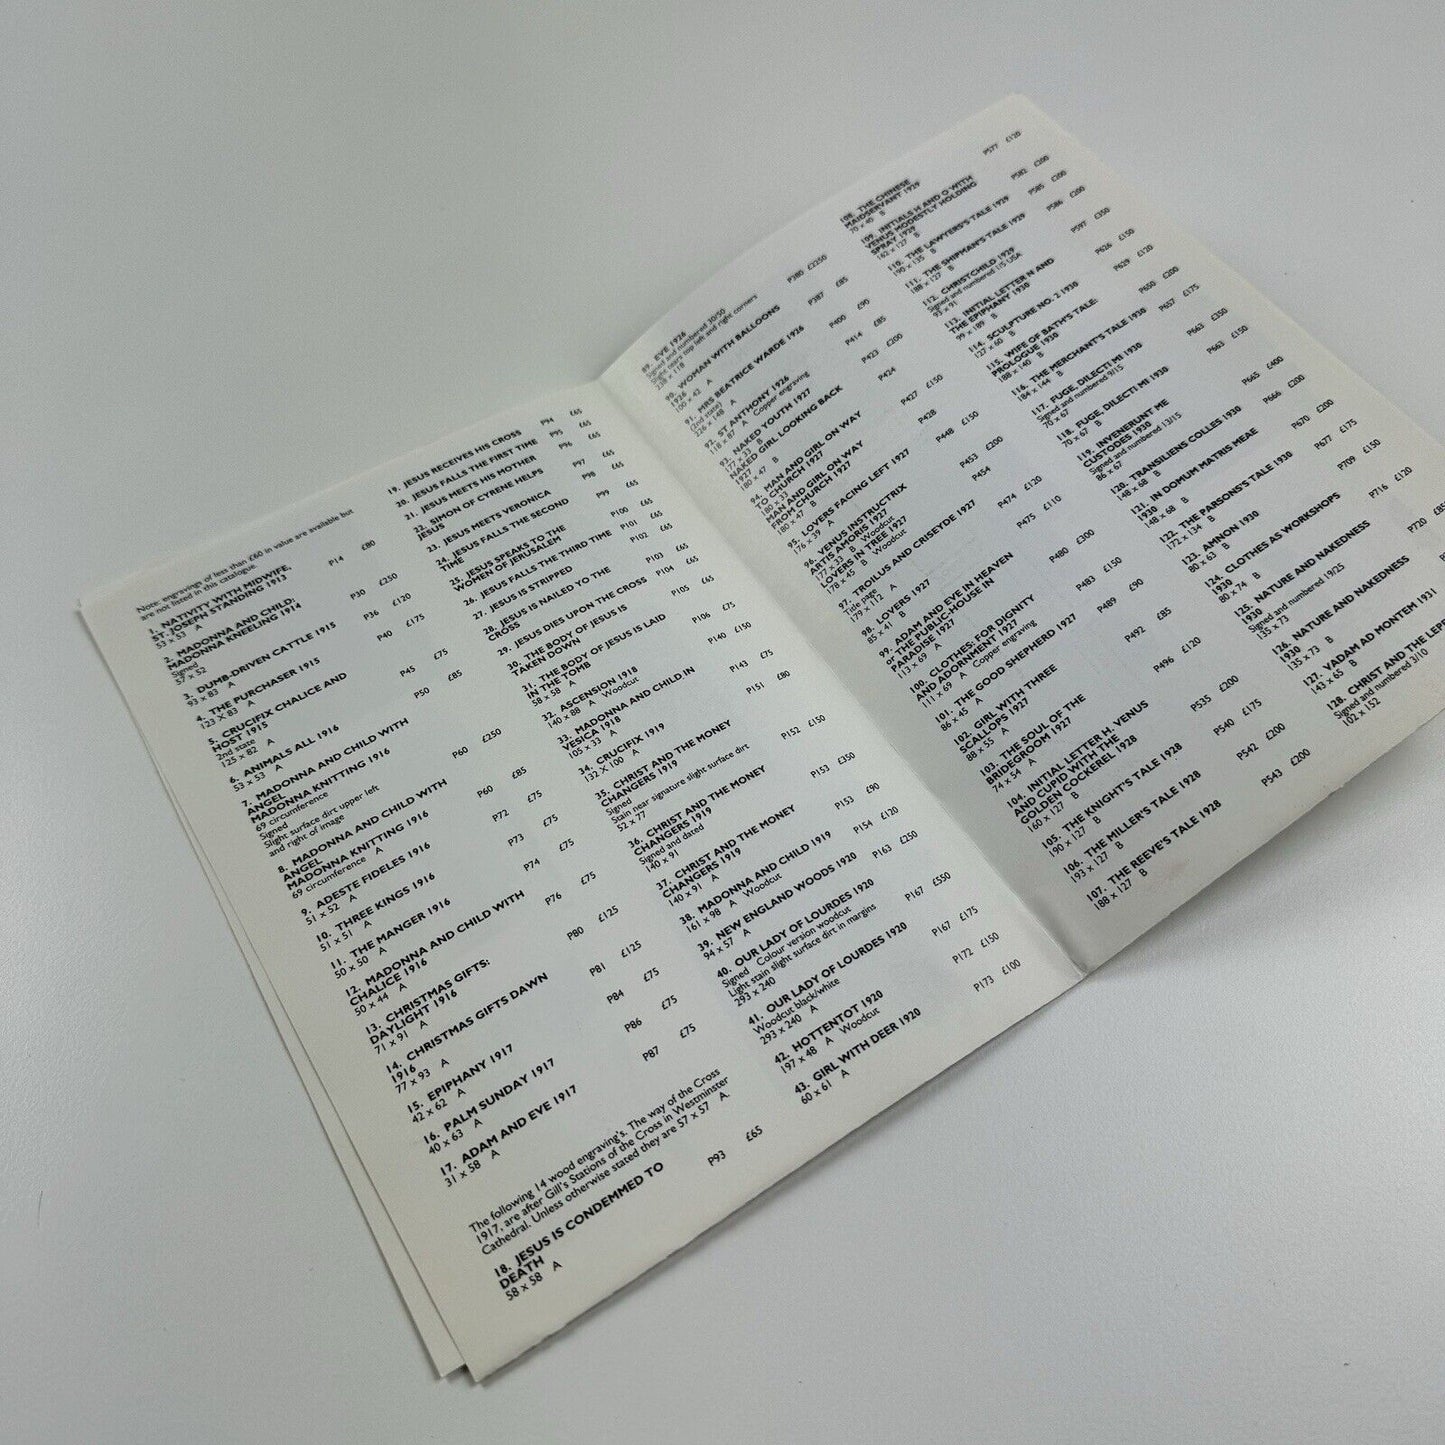 Note: engravings of less than £60 in value are available but
are not listed in this catalogue.
1. NATIVITY WITH MIDWIFE, P14 £80
ST. JOSEPH STANDING 1913
53 x 53 A
2. MADONNA AND CHILD: P30 £250
MADONNA KNEELING 1914
Signed
57 x 52
3. DUMB-DRIVEN CATTLE 1915 P36 £120
93 x 83 A
4. THE PURCHASER 1915 P40 £175
123 x 83 A
5. CRUCIFIX CHALICE AND P45 £75
HOST 1915
2nd state
125 x 82 A
6. ANIMALS ALL 1916 P50 £85
53 x 53 A
7. MADONNA AND CHILD WITH P60 £250
ANGEL
MADONNA KNITTING 1916
69 circumference
Signed
Slight surface dirt upper left
and right of image
8. MADONNA AND CHILD WITH P60 £85
ANGEL
MADONNA KNITTING 1916
69 circumference A
9. ADESTE FIDELES 1916 P72 £75
51 x 52 A
10. THREE KINGS 1916 P73 £75
51 x 51 A
11. THE MANGER 1916 P74 £75
50 x 50 A
12. MADONNA AND CHILD WITH P76 £75
CHALICE 1916
50 x 44 A
13. CHRISTMAS GIFTS: P80 £125
DAYLIGHT 1916
71 x 91 A
14. CHRISTMAS GIFTS DAWN P81 £125
1916
77 x 93 A
15. EPIPHANY 1917 P84 £75
42 x 62 A
16. PALM SUNDAY 1917 P86 £75
40 x 63 A
17. ADAM AND EVE 1917 P87 £75
31 x 58 A
The following 14 wood engraving's. The way of the Cross
1917, are after Gill's Stations of the Cross in Westminster
Cathedral. Unless otherwise stated they are 57 x 57 A.
18. JESUS IS CONDEMMED TO P93 £65
DEATH
58 x 58 A
19. JESUS RECEIVES HIS CROSS P94 £65
20. JESUS FALLS THE FIRST TIME P95 £65
21. JESUS MEETS HIS MOTHER P96 £65
22. SIMON OF CYRENE HELPS P97 £65
JESUS
23. JESUS MEETS VERONICA P98 £65
24. JESUS FALLS THE SECOND P99 £65
TIME
25. JESUS SPEAKS TO THE P100 £65
WOMEN OF JERUSALEM
26. JESUS FALLS THE THIRD TIME P101 £65
27. JESUS IS STRIPPED P102 £65
28. JESUS IS NAILED YO THE P103 £65
CROSS
29. JESUS DIES UPON THE CROSS P104 £65
30. THE BODY OF JESUS IS P105 £65
TAKEN DOWN
31. THE BODY OF JESUS IS LAID P106 £75
IN THE TOMB
58 x 58 A
32. ASCENSION 1918 P140 £150
140 x 88 A Woodcut
33. MADONNA AND CHILD,IN P143 £75
VESICA 1918
105 x 33 A
34. CRUCIFIX 1919 P151 £80
132 x 100 A
35. CHRIST AND THE MONEY P152 £150
CHANGERS 1919
Signed
Stain near signature slight surface dirt
52 x 77
36. CHRIST AND THE MONEY P153 £350
CHANGERS 1919
Signed and dated
140 x 91
37. CHRIST AND THE MONEY P153 £90
CHANGERS 1919
140 x 91 A
38. MADONNA AND CHILD 1919 P154 £120
161 x 98 A Woodcut
39. NEW ENGLAND WOODS 1920 P163 £250
94 x 57 A
40. OUR LADY OF LOURDES 1920 P167 £550
Signed Colour version woodcut
Light stain slight surface dirt in margins
293 x 240
41. OUR LADY OF LOURDES 1920 P167 £175
Woodcut black/white
293 x 240 A
42. HOTTENTOT 1920 P172 £150
197 x 48 A Woodcut
43. GIRL WITH DEER 1920 P173 £100
60 x 61 A
89. EVE 1926 P380 £2250
Signed and numbered 30/50
Slight tears top left and right corners
238 x 118
90. WOMAN WITH BALLOONS P387 £85
1926
100 x 42 A
91. MRS BEATRICE WARDE 1926 P400 £90
(2nd state)
226 x 148 A
92. ST ANTHONY 1926 P414 £85
118 x 87 A Copper engraving
93. NAKED YOUTH 1927 P423 £200
177 x 33 B
NAKED GIRL LOOKING BACK P424
1927
180 x 47 B
94. MAN AND GIRL ON WAY P427 £150
TO CHURCH 1927
180 x 33
MAN AND GIRL ON WAY P428
FROM CHURCH 1927
180 x 47 B
95. LOVERS FACING LEFT 1927 P448 £150
176 x 39 A
96. VENUS INSTRUCTRIX P453 £200
ARTIS AMORIS 1927
177 x 33 B Woodcut
LOVERS IN TREE 1927 P454
178 x 45 B Woodcut
97. TROILUS AND CRISEYDE 1927 P474 £120
Title page
179 x 112 A
98. LOVERS 1927 P475 £110
85 x 41 B
99. ADAM AND EVE IN HEAVEN P480 £300
or THE PUBLIC HOUSE IN
PARADISE 1927
113 x 69 A
100. CLOTHES: FOR DIGNITY P483 £150
AND ADORNMENT 1927
111 x 69 A Copper engraving
101. THE GOOD SHEPHERD 1927 P489 £90
86 x 45 A
102. GIRL WITH THREE P492 £85
SCALLOPS 1927
88 x 55 A
103. THE SOUL OF THE P496 £120
BRIDEGROOM 1927
74 x 54 A
104. INITIAL LETTER H. VENUS P535 £200
AND CUPID WITH THE
GOLDEN COCKEREL 1928
160 x 127 B
105. THE KNIGHT'S TALE 1928 P540 £175
190 x 127 B
106. THE MILLER'S TALE 1928 P542 £200
193 x 127 B
107. THE REEVE'S TALE 1928 P543 £200
188 x 127 B
108. THE CHINESE P577 £120
MAIDSERVANT 1929
70 x 45 B
109. INITIALS H AND O WITH P582 £200
VENUS MODESTLY HOLDING
SPRAY 1929
162 x 127 B
110. THE LAWYERS'S TALE 1929 P585 £200
190 x 135 B
111. THE SHIPMAN'S TALE 1929 P586 £200
188 x 127 B
112. CHRISTCHILD 1929 P597 £350
Signed and numbered 1/5 USA
93 x 91
113. INITIAL LETTER N AND P626 £150
THE EPIPHANY 1930
99 x 189 B
114. SCULPTURE NO. 2 1930 P629 £120
127 x 60 B
115. WIFE OF BATH'S TALE: P650 £200
PROLOGUE 1930
188 x 140 B
116. THE MERCHANT'S TALE 1930 P657 £175
184 x 144 B
117. FUGE, DILECTI MI 1930 P663 £350
Signed and numbered 9/15
70 x 67
118. FUGE, DILECTI MI 1930 P663 £150
70 x 67 B
119. INVENERUNT ME P665 £400
CUSTODES 1930
Signed and numbered 13/15
86 x 67
120. TRANSILIENS COLLES 1930 P666 £200
148 x 68 B
121. IN DOMUM MATRIS MEAE P670 £200
1930
148 x 68 B
122. THE PARSONS'S TALE 1930 P677 £175
172 x 134 B
123. AMNON 1930 P709 £150
80 x 63 B
124. CLOTHES AS WORKSHOPS P716 £120
1930
80 x 74 B
125. NATURE AND NAKEDNESS P720 £85
1930
Signed and numbered 19/25
135 x 73
126. NATURE AND NAKEDNESS
1930
135 x 73 B
127. VADAM AD MONTEM 1931
143 x 65 B
128. CHRIST AND THE LEPE
Signed and numbered 3/10
102 x 152